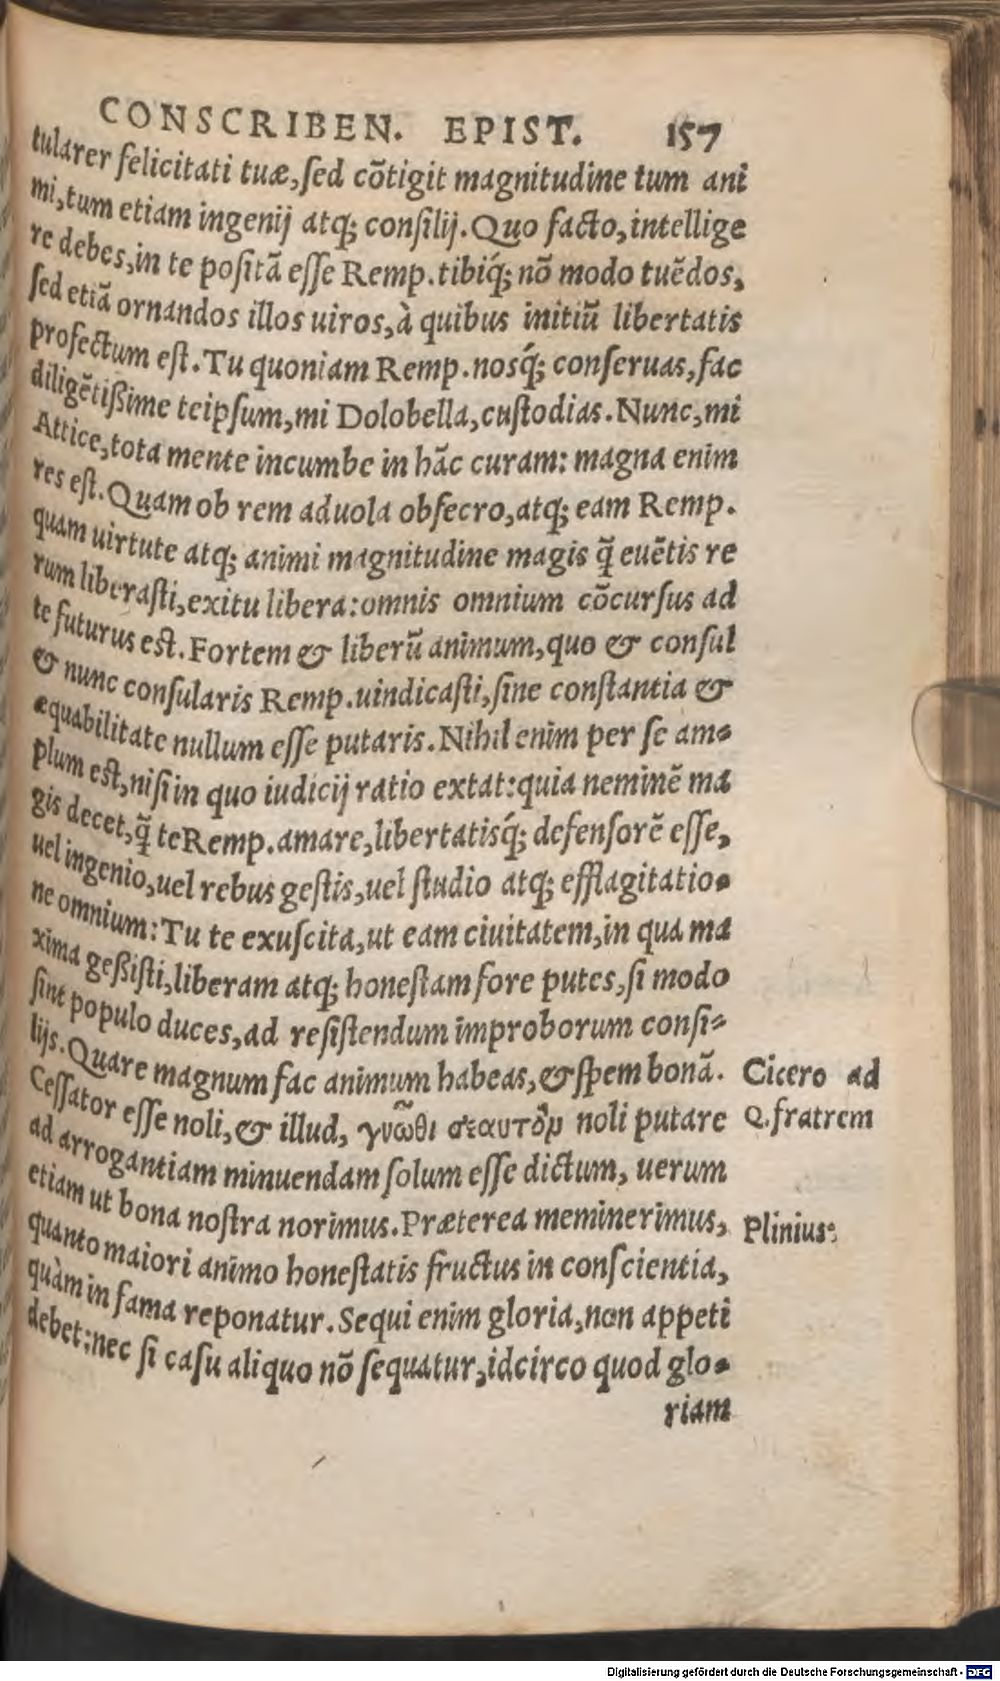 CONSCRIBEN. EPIST. 157
tularer felicitati tuæ, ſed cõtigit magnitudine tum ani
mi, tum etiam ingenij atq; conſilij. Quo facto, intellige
re debes, in te poſitã eſſe Remp. tibiq́; nõ modo tuẽdos,
ſed etiã ornandos illos uiros, à quibus initiũ libertatis
profectum eſt. Tu quoniam Remp. nosq́; conſeruas, fac
diligẽtißime teipſum, mi Dolobella, cuſtodias. Nunc, mi
Attice, tota mente incumbe in hãc curam: magna enim
res eſt. Quam ob rem aduola obſecro, atq; eam Remp.
quam uirtute atq; animi magnitudine magis q̃ euẽtis re
rum liberaſti, exitu libera: omnis omnium cõcurſus ad
te futurus est. Fortem & liberũ animum, quo & conſul
& nunc conſularis Remp. uindicaſti, ſine conſtantia &
æquabilitate nullum eſſe putaris. Nihil enim per ſe am⸗
plum eſt, niſi in quo iudicij ratio extat: quia neminẽ ma
gis decet, q̃ te Remp. amare, libertatisq́; defenſorẽ eſſe,
uel ingenio, uel rebus geſtis, uel ſtudio atq; efflagitatio⸗
ne omnium: Tu te exuſcita, ut eam ciuitatem, in qua ma
xima geßiſti, liberam atq; honeſtam fore putes, ſi modo
ſint populo duces, ad reſiſtendum improborum conſi⸗
lijs. Quare magnum fac animum habeas, & ſpem bonã.
Cicero ad
Ceſſator eſſe noli, & illud, γνῶθι σεαυτὸν noli putare
Q. fratrem
ad arrogantiam minuendam ſolum eſſe dictum, uerum
etiam ut bona noſtra norimus. Præterea meminerimus,
Plinius:
quanto maiori animo honeſtatis fructus in conſcientia,
quàm in fama reponatur. Sequi enim gloria, non appeti
debet: nec ſi caſu aliquo nõ ſequatur, idcirco quod glo⸗
riam
Digitalisierung gefördert durch die Deutsche Forschungsgemeinschaft - DFG